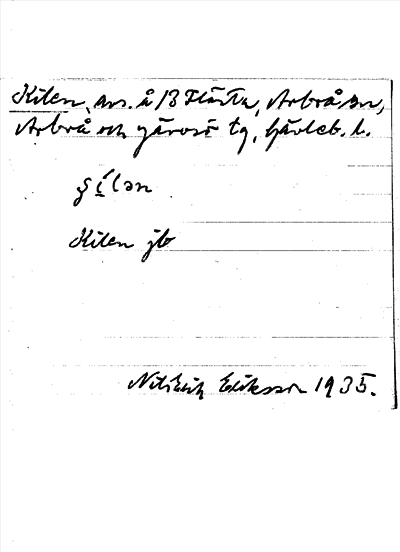 Kilen, avs. å 13 Flästa, Arbrå sn,
Arbrå och Järvsö tg, Gävleb. l.
Kilen jb
Nils Erik Eriksson 1935.